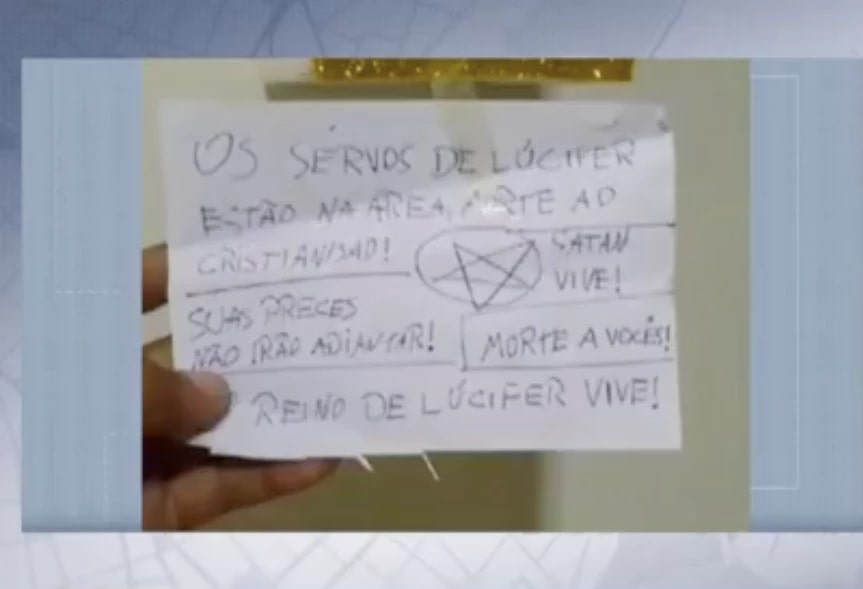 OS SÉRVOS DE LÚCIFER
ESTÃO NA ÁREA, MORTE AO
CRISTIANISMO!
SATAN
VIVE!
SUAS PRECES
NÃO IRÃO ADIANTAR!
MORTE A VOCÊS!
REINO DE LÚCIFER VIVE!